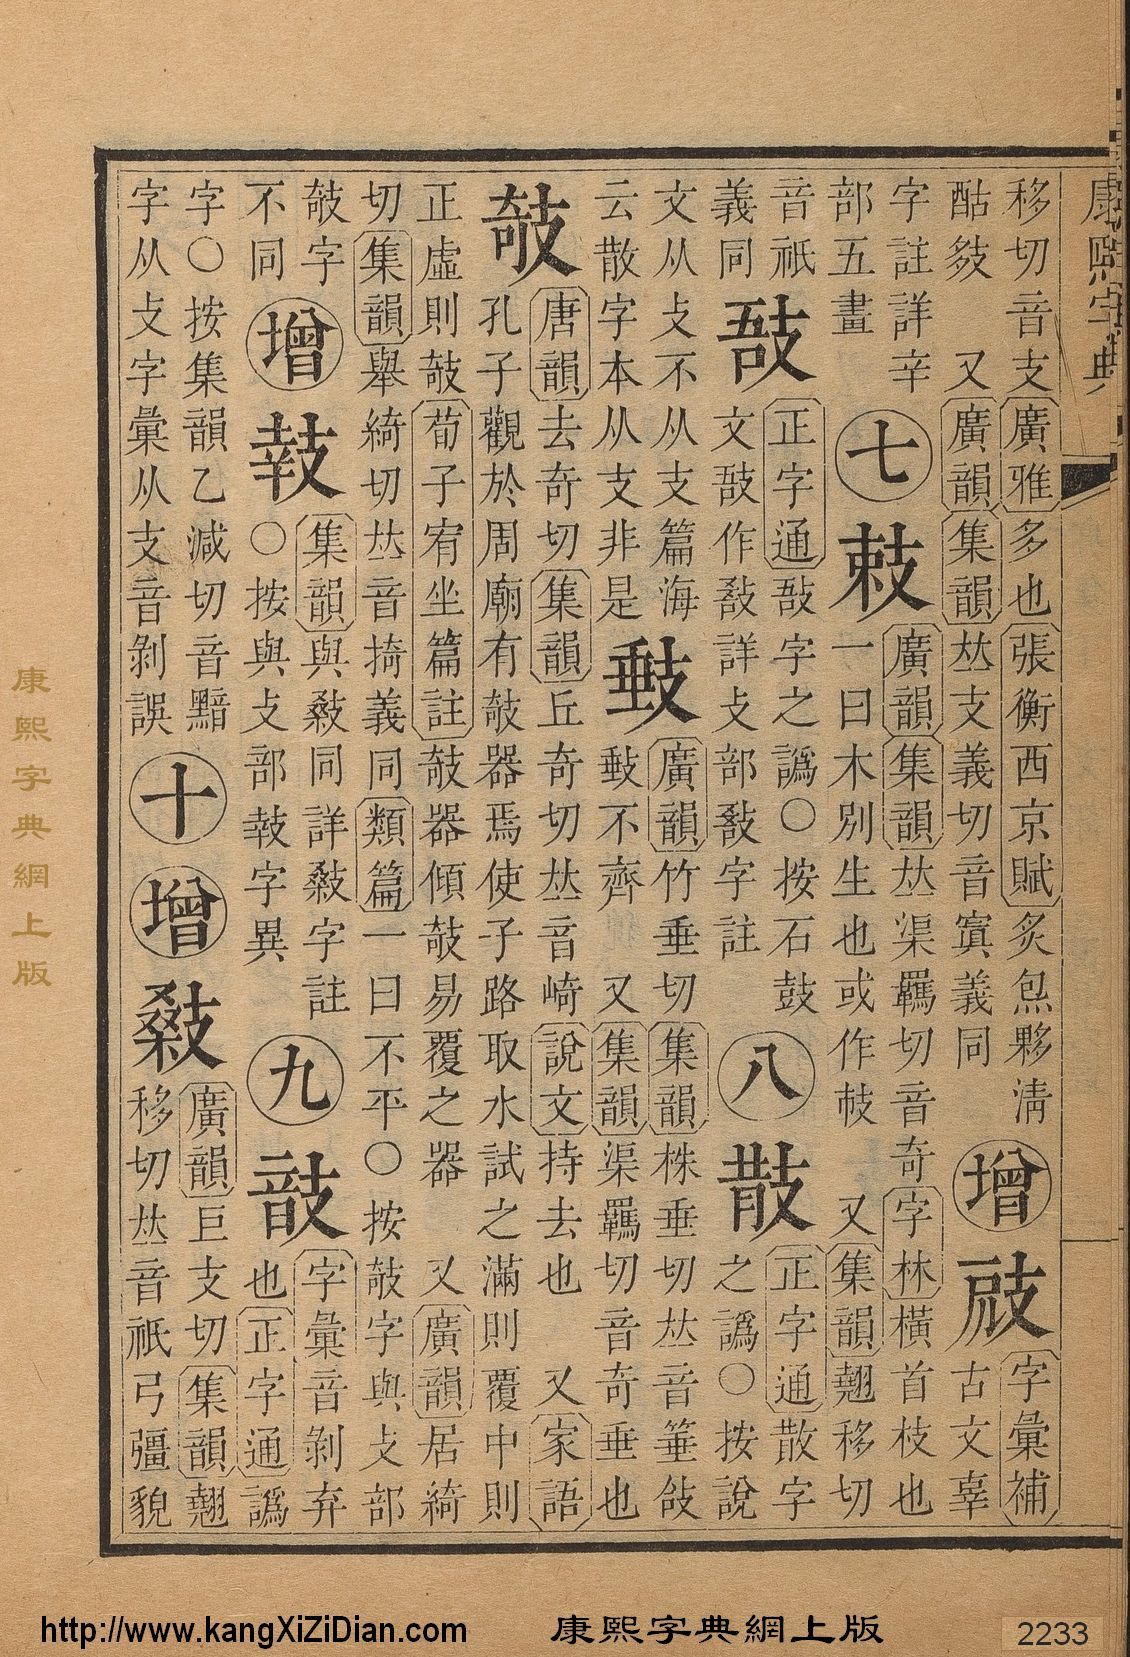 康熙字典
移切音支廣雅多也張衡西京賦炙炰夥淸
酤㩼 又廣韻集韻𠀤支義切音寘義同 增 𢻔 字彙補古文辜
字註詳辛
部五畫 七 𢻘 廣韻集韻𠀤渠羈切音奇字林橫首枝也
一曰木別生也或作攱 又集韻翹移切
音祇
義同 敔 正字通敔字之譌○按石鼓
文敔作𢾒詳攴部𢾒字註 八 㪚 正字通散字
之譌○按說
文从攴不从支篇海
云散字本从支非是 㩾 廣韻竹垂切集韻株垂切𠀤音箠㪉
㩾不齊 又集韻渠羈切音奇垂也
攲 唐韻去奇切集韻丘奇切𠀤音崎說文持去也 又家語
孔子觀於周廟有攲器焉使子路取水試之滿則覆中則
正虛則攲荀子宥坐篇註攲器傾攲易覆之器 又廣韻居綺
切集韻舉綺切𠀤音掎義同類篇一曰不平○按攲字與攴部
敧字
不同 增 𢻪 集韻與𢻹同詳𢻹字註
○按與攴部𢻪字異 九 㪗 字彙音剝弃
也正字通譌
字○按集韻乙減切音黯
字从攴字彙从支音剝誤 十 增 𢻹 廣韻巨支切集韻翹
移切𠀤音祇弓彊貌
康熙字典網上版
http://www.kangXiZiDian.com
康熙字典網上版
2233